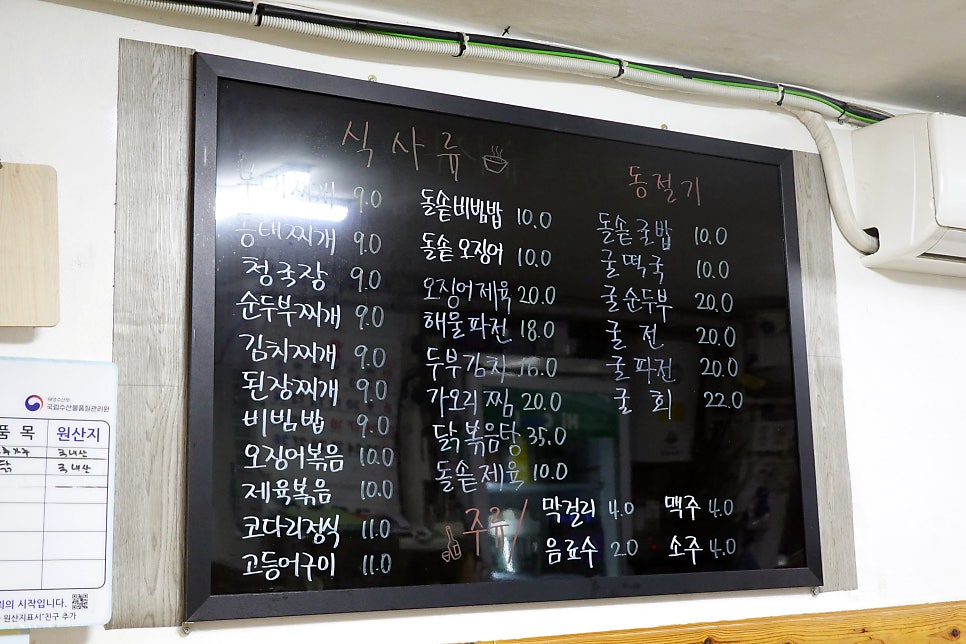 식사류
부대찌개 9.0
동태찌개 9.0
청국장 9.0
순두부찌개 9.0
김치찌개 9.0
된장찌개 9.0
비빔밥 9.0
오징어볶음 10.0
제육볶음 10.0
코다리정식 11.0
고등어구이 11.0
돌솥비빔밥 10.0
돌솥오징어 10.0
오징어제육 20.0
해물파전 18.0
두부김치 16.0
가오리찜 20.0
닭볶음탕 35.0
돌솥제육 10.0
동절기
돌솥굴밥 10.0
굴떡국 10.0
굴순두부 20.0
굴전 20.0
굴파전 20.0
굴회 22.0
주류/
막걸리 4.0 맥주 4.0
음료수 2.0 소주 4.0
해양수산부
국립수산물품질관리원
품목 원산지
국내산
닭 국내산
의 시작입니다.
원산지표시"친구 추가